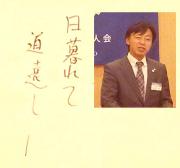 日暮れて
道遠し
人会